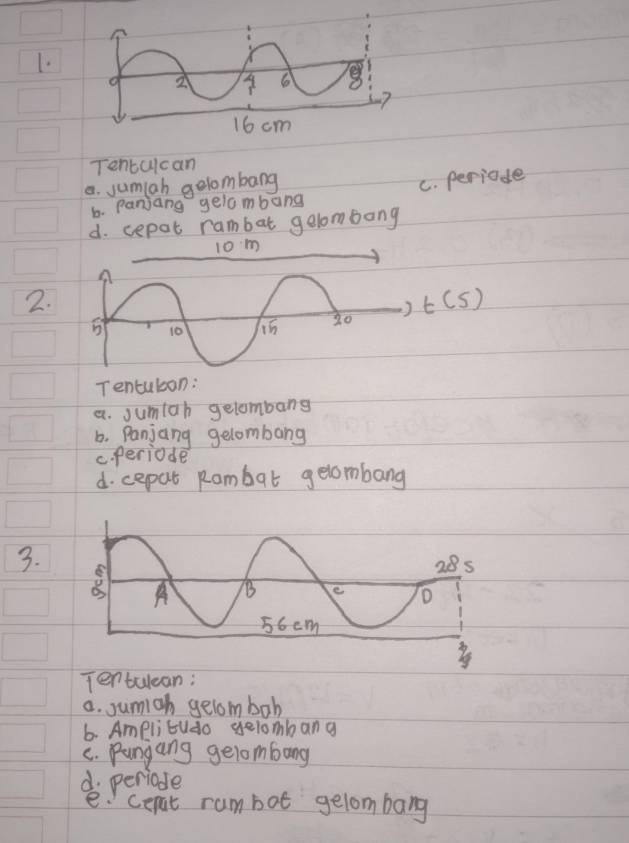 1.
0 2 4 6 8
16 cm
Tentulcan
a. Jumlah gelombang
c. periode
b. Panjang gelombang
d. cepat rambat gelombang
10 m
2.
5 10 15 20 t (S)
Tentukan:
a. Jumlah gelombang
b. Panjang gelombang
c. Periode
d. cepat Rambat gelombang
3.
28 s
8cm A B C D
56 cm
Tentukan:
a. Jumlah gelomboh
b. Amplitudo gelombang
c. Pangang gelombang
d. periode
e. Cepat rambat gelombang